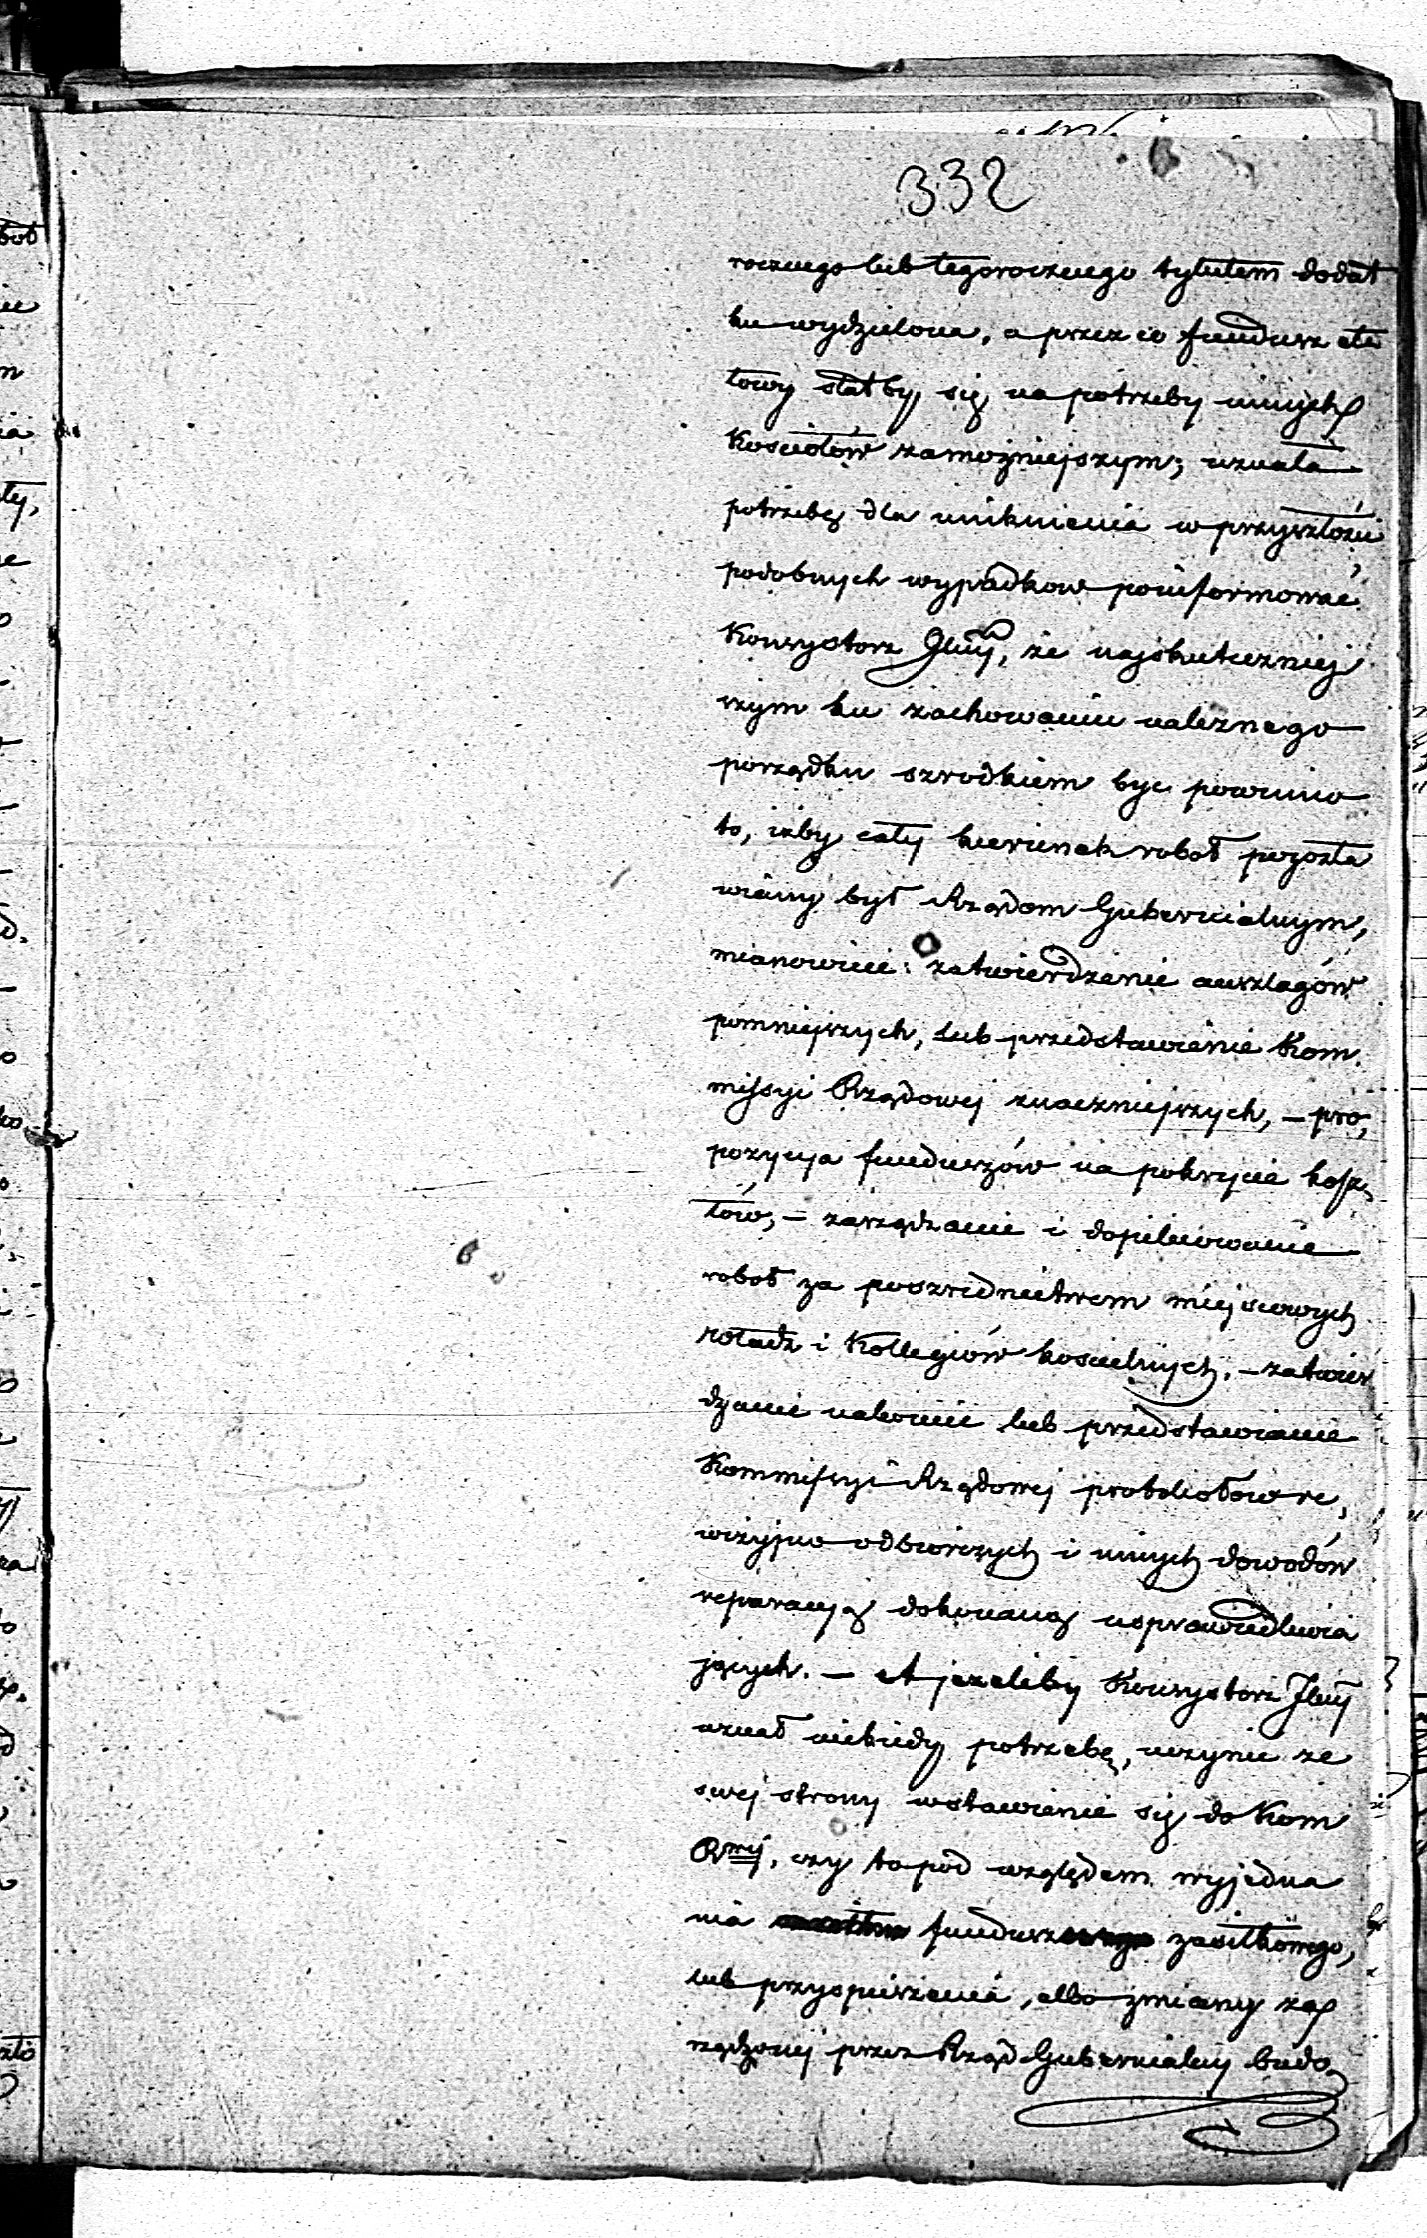 332
rocznego lub tegorocznego tytułem dodat
ku wydzielona, a przez co fundusz eta
towy stałby się na potrzeby innych
Kosciołów zamożniejszym; uznała
potrzebę dla uniknienia w przyszłości
podobnych wypadkow poinformować
Konsystorz Jlny, że najskuteczniej
szym ku zachowaniu należnego
porządku szrodkiem byc powinno
to, iżby cały kierunek robot pozosta
wiany był Rządom Gubernialnym,
mianowicie: zatwierdzanie anszlagów
pomniejszych, lub przedstawienie Kom
missyi Rządowej znaczniejszych, – pro,
pozycya funduszów na pokrycie kosz
tów, – zarządzanie i dopilnowanie
robot za poszrednictwem miejscowych
władz i Kollegiów koscielnych, – zatwier
dzanie nakoniec lub przedstawianie
Kommissyi Rządowej protokołow re,
wizyjno odbiorczych i innych dowodów
reparacyą dokonaną usprawiedliwia
jących. – A jezeliby Konsystorz Jlny
uznał niekiedy potrzebę, uczynic ze
swej strony wstawienie się do Kom
Rwej, czy to pod względem wyjedna
nia fundusz zasiłkowego,
lub przyspieszenia, albo zmiany za
rządzonej przez Rząd Gubernialny budo